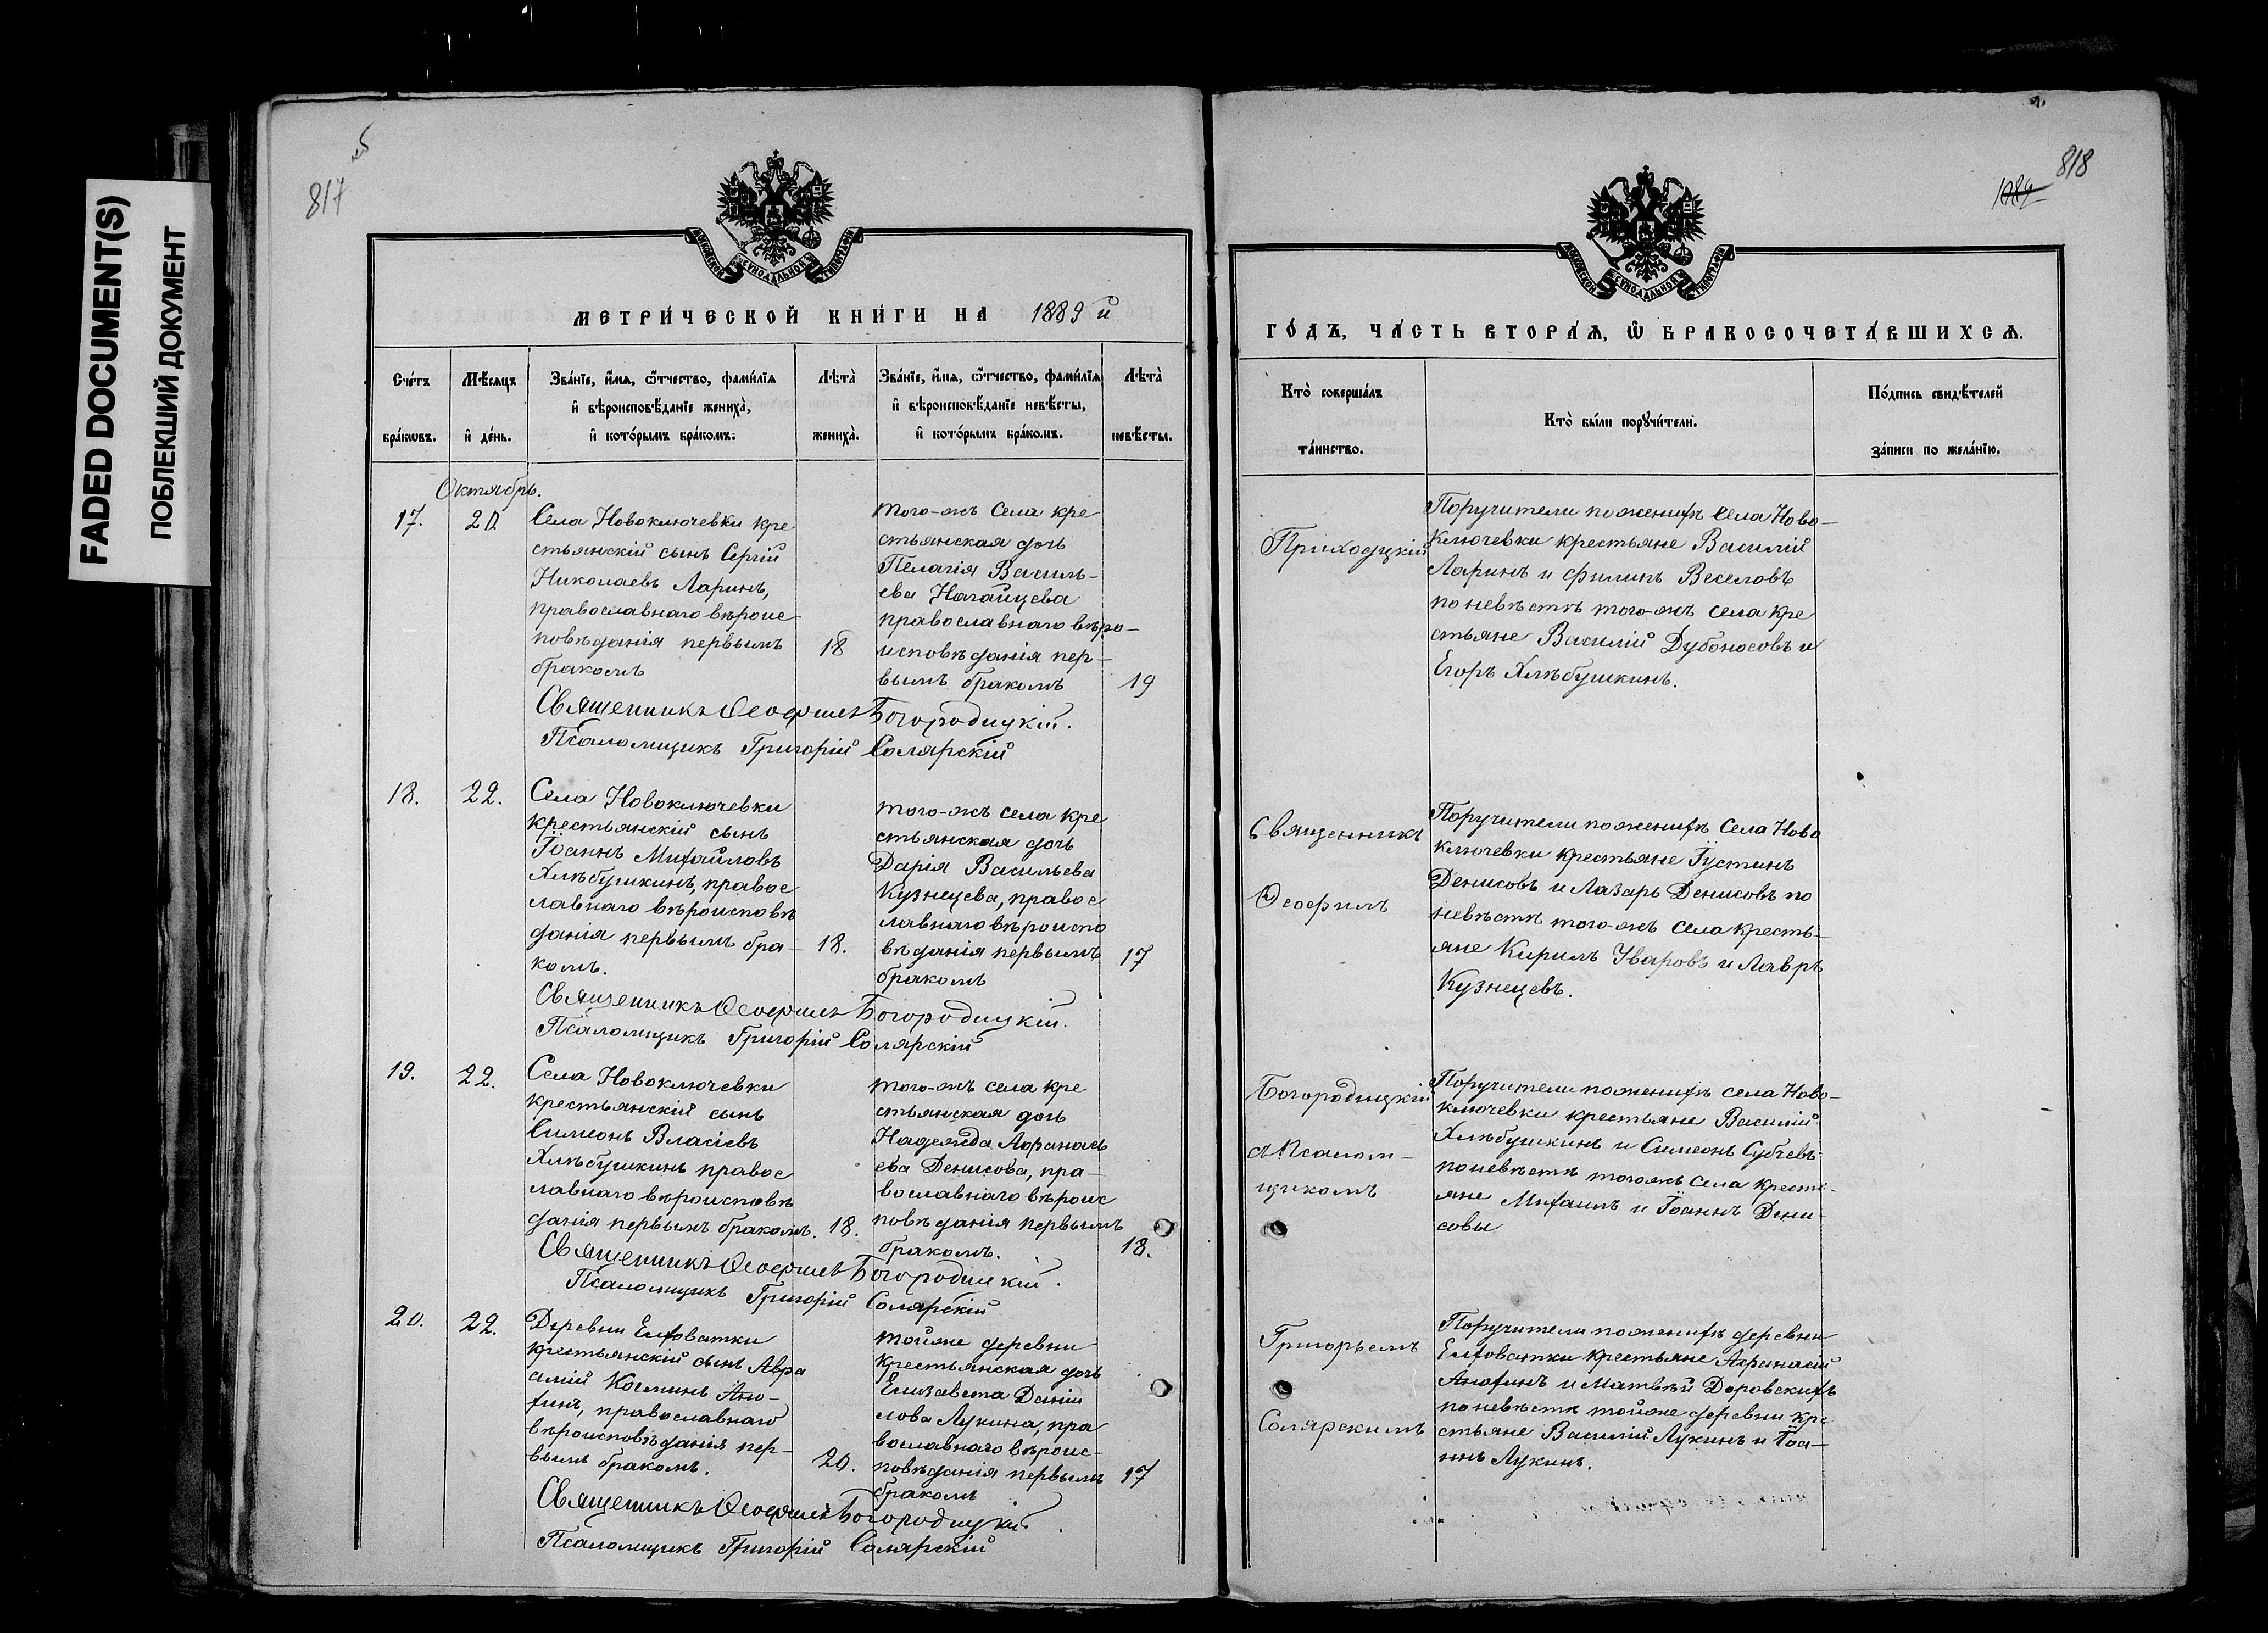 FADED DOCUMENT(S)
ПОБЛЕКШИЙ ДОКУМЕНТ
817
МОСКОВСКОЙ СѴНОДАЛЬНОЙ ТИПОГРАФІИ
МЕТРИ́ЧЕСКОЙ КНИ́ГИ НА 1889 й
Сче́тъ бра́кѡвъ.
Мѣ́сяцъ и҆ де́нь.
Зва́нїе, и҆́мѧ, ѻ҆́тчество, фами́лїѧ
и҆ вѣроисповѣ́данїе жениха̀,
и҆ кото́рымъ бра́комъ.
Лѣта̀ жениха̀.
Зва́нїе, и҆́мѧ, ѻ҆́тчество, фами́лїѧ
и҆ вѣроисповѣ́данїе невѣ́сты,
и҆ кото́рымъ бра́комъ.
Лѣта̀ невѣ́сты.
Октябрь.
17.
20
Села Новоключевки кре
стьянскій сынъ Сергій
Николаевъ Ларинъ,
православнаго вѣроис
повѣданія первымъ
бракомъ
18
того-жъ села кре
стьянская дочь
Пелагія Василь-
ева Нагайцева
православнаго вѣро-
исповѣданія пер-
вымъ бракомъ
19
Священникъ Ѳеофилъ Богородицкій.
Псаломщикъ Григорій Солярскій
18.
22.
Села Новоключевки
крестьянскій сынъ
Іоаннъ Михайловъ
Хлѣбушкинъ, правос
лавнаго вѣроисповѣ
данія первымъ бра-
комъ.
18.
того-жъ села кре
стьянская дочь
Дарія Васильева
Кузнецева, правос
лавнаго вѣроиспо
вѣданія первымъ
бракомъ
17
Священникъ Ѳеофилъ Богородицкій.
Псаломщикъ Григорій Солярскій
19.
22.
Села Новоключевки
крестьянскій сынъ
Симеонъ Власіевъ
Хлѣбушкинъ правос
лавнаго вѣроисповѣ
данія первымъ бракомъ.
18.
того-жъ села кре
стьянская дочь
Надежда Афанась
ева Денисова, пра-
вославнаго вѣроис
повѣданія первымъ
бракомъ.
18.
Священникъ Ѳеофилъ Богородицкій.
Псаломщикъ Григорій Солярскій
20.
22.
Деревни Елховатки
крестьянскій сынъ Авра
амій Косминъ Ано-
хинъ, православнаго
вѣроисповѣданія пер-
вымъ бракомъ.
20.
тойже деревни
крестьянская дочь
Елизавета Даніи
лова Лукина, пра
вославнаго вѣроис-
повѣданія первымъ
бракомъ
17
Священникъ Ѳеофилъ Богородицкій.
Псаломщикъ Григорій Солярскій
818
1084
МОСКОВСКОЙ СѴНОДАЛЬНОЙ ТИПОГРАФІИ
ГО́ДЪ, ЧА́СТЬ ВТОРА́Ѧ, Ѽ БРАКОСОЧЕТА́ВШИХСѦ.
Кто̀ соверша́лъ та́инство.
Кто̀ бы́ли порꙋчи́тели.
По́дпись свидѣ́телей за́писи по жела́нїю.
Приходскій
Священникъ
Ѳеофилъ
Богородицкій
съ Псалом-
щикомъ
Григорьемъ
Солярскимъ
Поручители по женихѣ села Ново-
ключевки крестьяне Василій
Ларинъ и Филипъ Веселовъ
по невѣстѣ того-жъ села кре
стьяне Василій Дубоносовъ и
Егоръ Хлѣбушкинъ.
Поручители по женихѣ села Ново
ключевки крестьяне Іустинъ
Денисовъ и Лазарь Денисовъ по
невѣстѣ того-жъ села кресть-
яне Кирилъ Уваровъ и Лавръ
Кузнецевъ.
Поручители по женихѣ села Ново-
ключевки крестьяне Василій
Хлѣбушкинъ и Симеонъ Субчевъ
по невѣстѣ тогожъ села кресть-
яне Михаилъ и Іоаннъ Дени-
совы
Поручители по женихѣ деревни
Елховатки крестьяне Афанасій
Анохинъ и Матвѣй Доровскихъ
по невѣстѣ тойже деревни кре
стьяне Василій Лукинъ и Іоа-
ннъ Лукинъ.